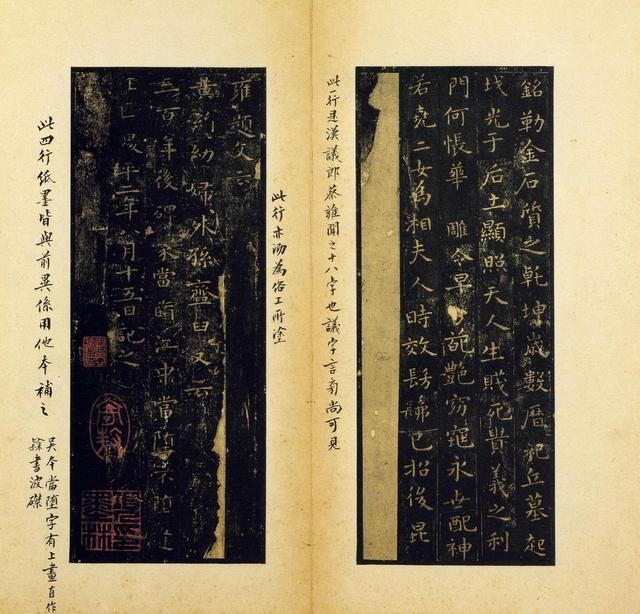 銘勒金石質之乾坤歲數曆祀丘墓起
墳光于后土顯照天人生賤死貴義之利
門何悵華雕令早葩艷窈窕永世配神
若堯二女為相夫人時效髣髴已招後昆
此一行是漢議郎蔡雍聞之十八字也議字言旁尚可見
此行亦泐為俗工所塗
雍題文云
黃絹幼婦外孫齏臼又云
三百年後碑冢當墮江中當墮不墮逢
王叵二年八月十五日記之
此四行紙墨皆與前異係用他本補之
吳本當墮字有上畫直作
隸書波磔